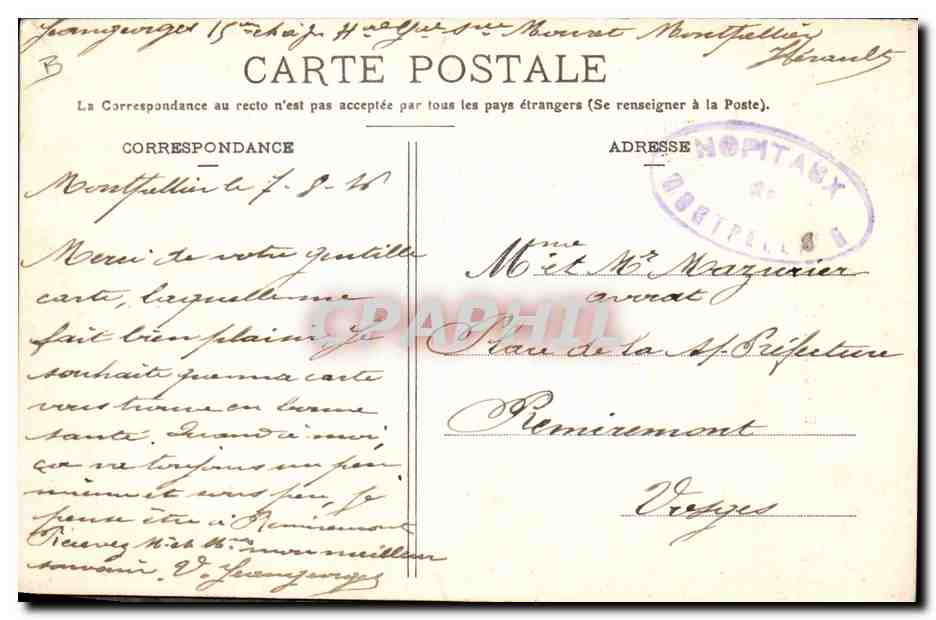 Jeangeorges 15 Montpellier
Hérault
B
CARTE POSTALE
La Correspondance au recto n'est pas acceptée par tous les pays étrangers (Se renseigner à la Poste).
CORRESPONDANCE
Montpellier le 7-8-16
Merci de votre gentille
carte, laquelle me
fait bien plaisir. Je
souhaite que ma carte
vous trouve en bonne
santé. Quand à moi,
ça va toujours un peu
mieux et sous peu, je
pense être à Remiremont
Recevez Mr et Mme mon meilleur
souvenir. V. Jeangeorges
ADRESSE
HOPITAUX
DE
MONTPELLIER
Mme et Mr Mazurier
avocat
Place de la s/ Préfecture
Remiremont
Vosges
CPAPHIL